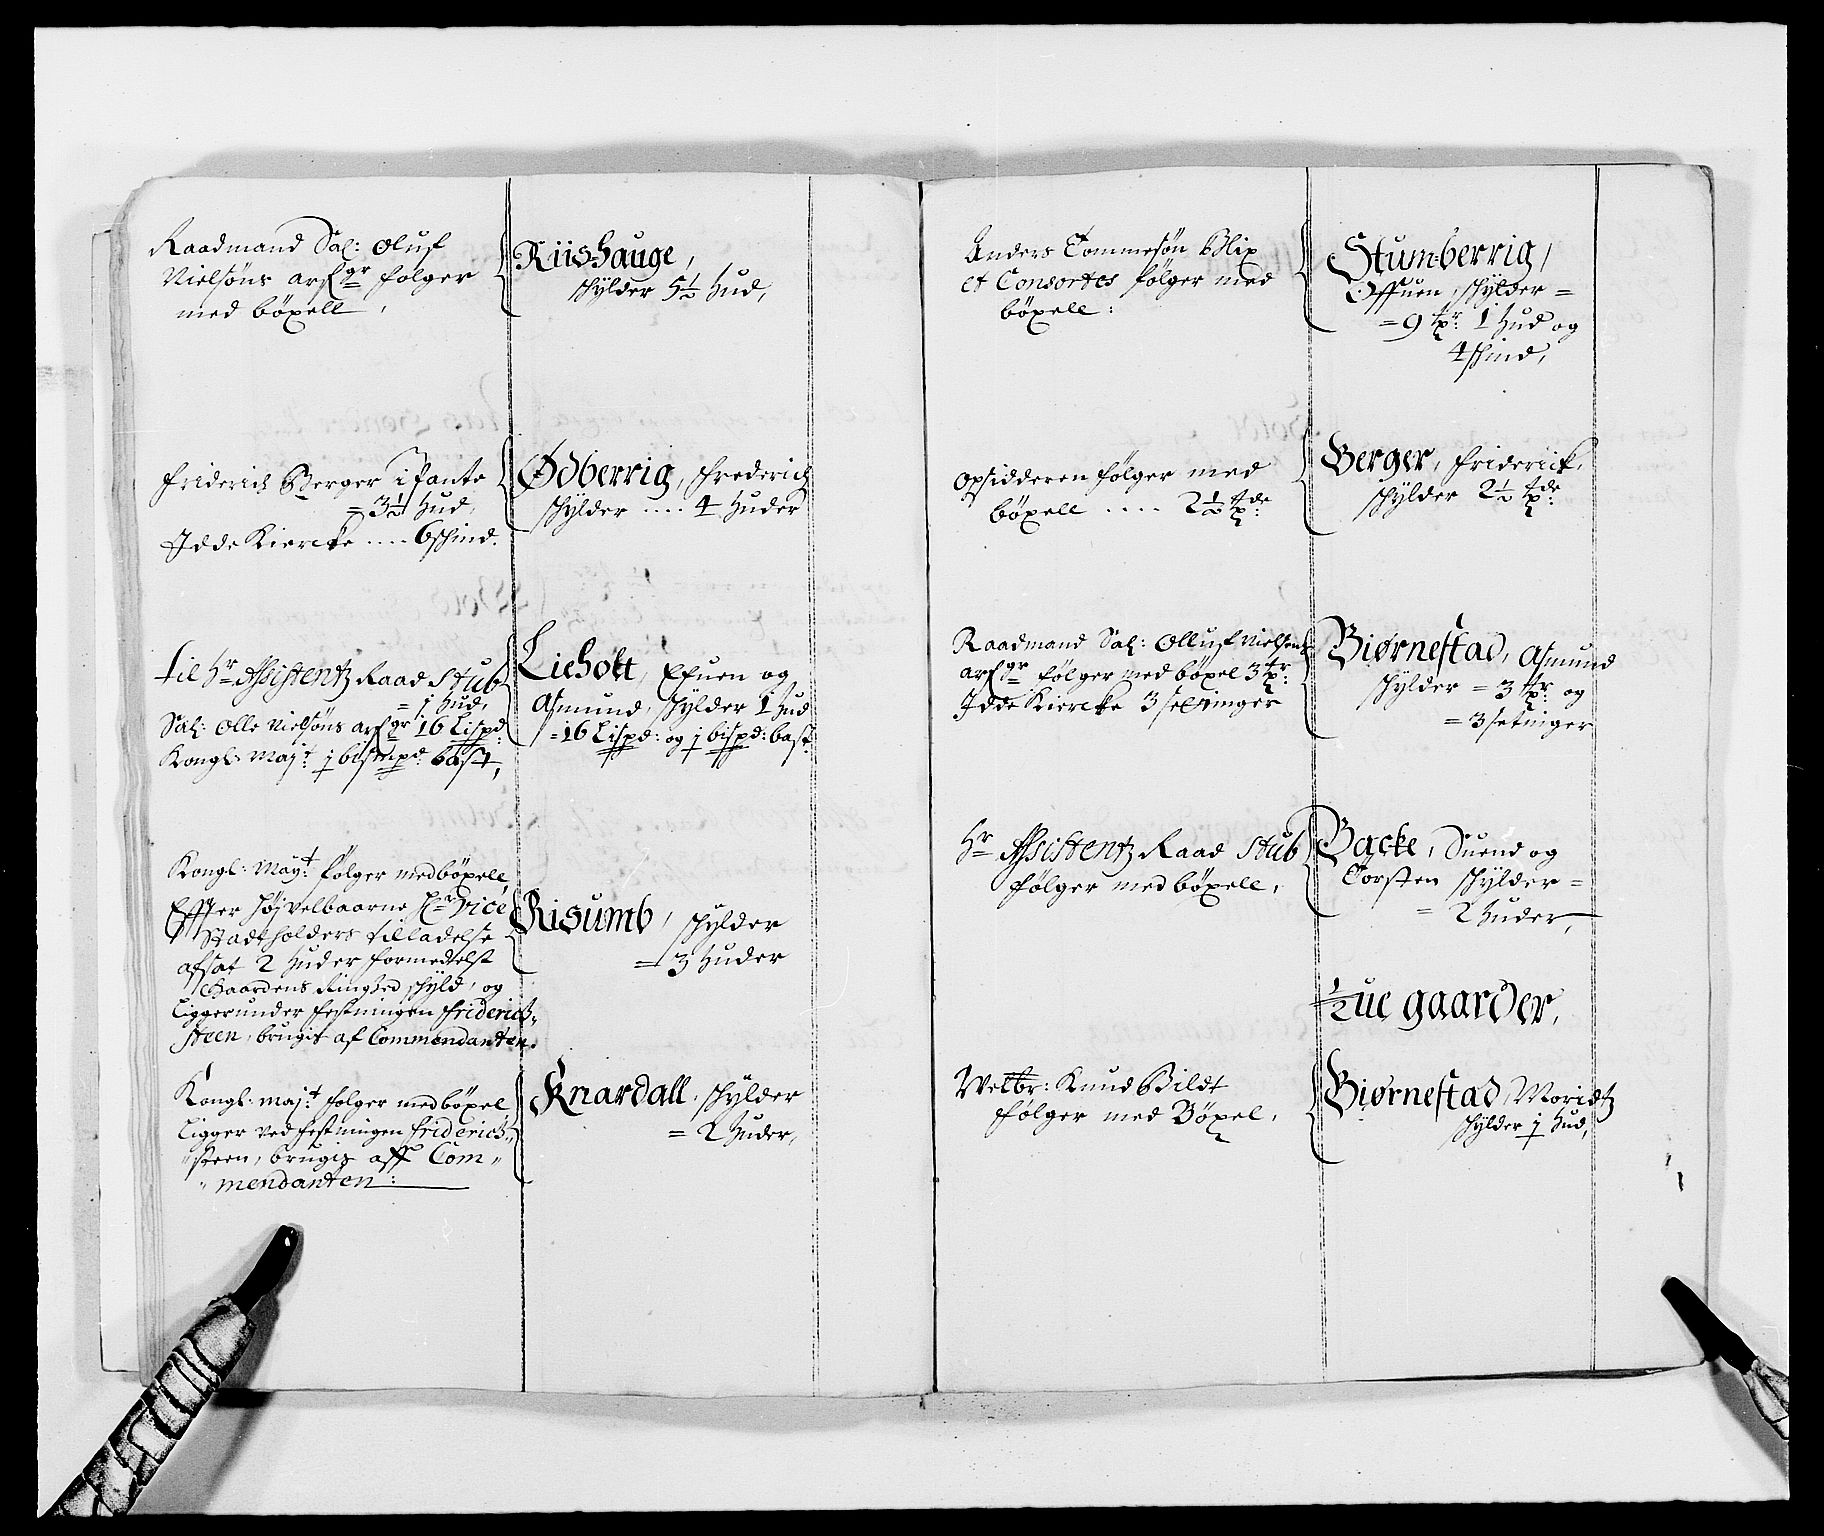 Raadmand Sal: Oluf
Nielsøns arfgr følger
med böxell,
Riishauge,
schylder 5½ Hud,
Friderich Berger i Pante
= 3½ Hud,
Idde Kiercke .... 6 schind.
Ødberrig, Frederich
schylder .... 4 Huder
Til Hr Assistentz Raad Stub
= 1 Hud,
Sal: Olle Nielsøns arfgr 16 Lispd:
Kongl: Majt: 1 bismpd: bast,
Lieholt, Efuen og
Asmund, schylder 1 Hud
= 16 Lispd: og 1 bispd: bast
Kongl: Mayt: følger med böxell,
Effter Höjvelbaarne Hr Vice
Stadtholders tilladelse
afsat 2 Huder formedelst
Gaardens Ringhed schyld, og
Ligger under Festningen Friderich-
steen, brugis af Commendanten.
Risumb, schylder
= 3 Huder
Kongl: Majt: følger med böxel,
Ligger ved Festningen Friderich-
steen, brugis aff Com„
„mendanten:
Knardall, schylder
= 2 Huder,
Anders Tommesøn Blix
et Consortes følger med
böxell:
Stumberrig,
Offuen, schylder =
= 9 tpr: 1 Hud og
4 schind,
Opsidderen følger med
böxell .... 2½ tpde:
Berger, Friderick,
schylder 2½ tpde:
Raadmand Sal: Olluf Nielsens
arfgr følger med böxel 3 tpr:
Idde Kiercke 3 setinger
Biørnestad, Asmund
schylder = 3 tpr: og
= 3 setinger
Hr Assistentz Raad Stub
følger med böxell,
Backe, Suend og
Torsten schylder =
= 2 Huder,
½ue gaarder,
Welbr: Knud Bildt
følger med Böxel,
Biørnestad, Moridtz
schylder 1 Hud,